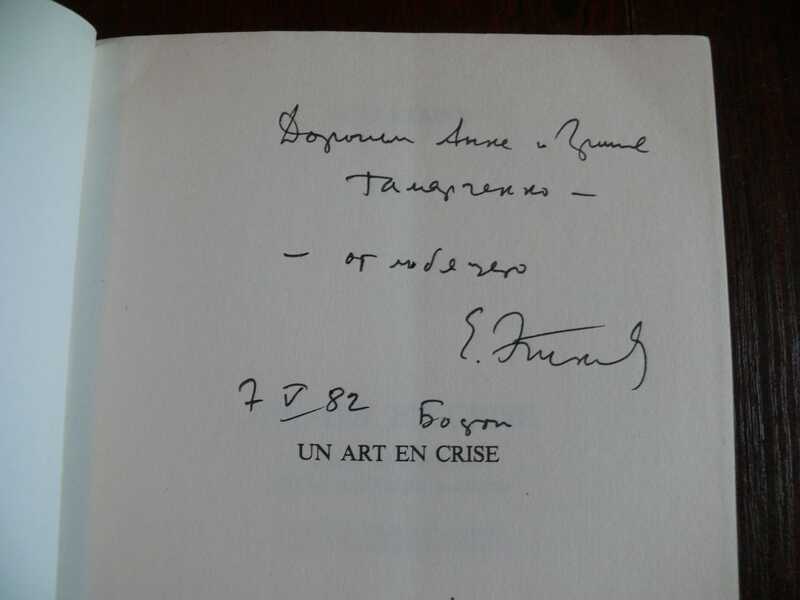 Дорогим Анне и Грише
Тамарченко —
— от любящего
Е. Эткинд
7 V 82 Бостон
UN ART EN CRISE